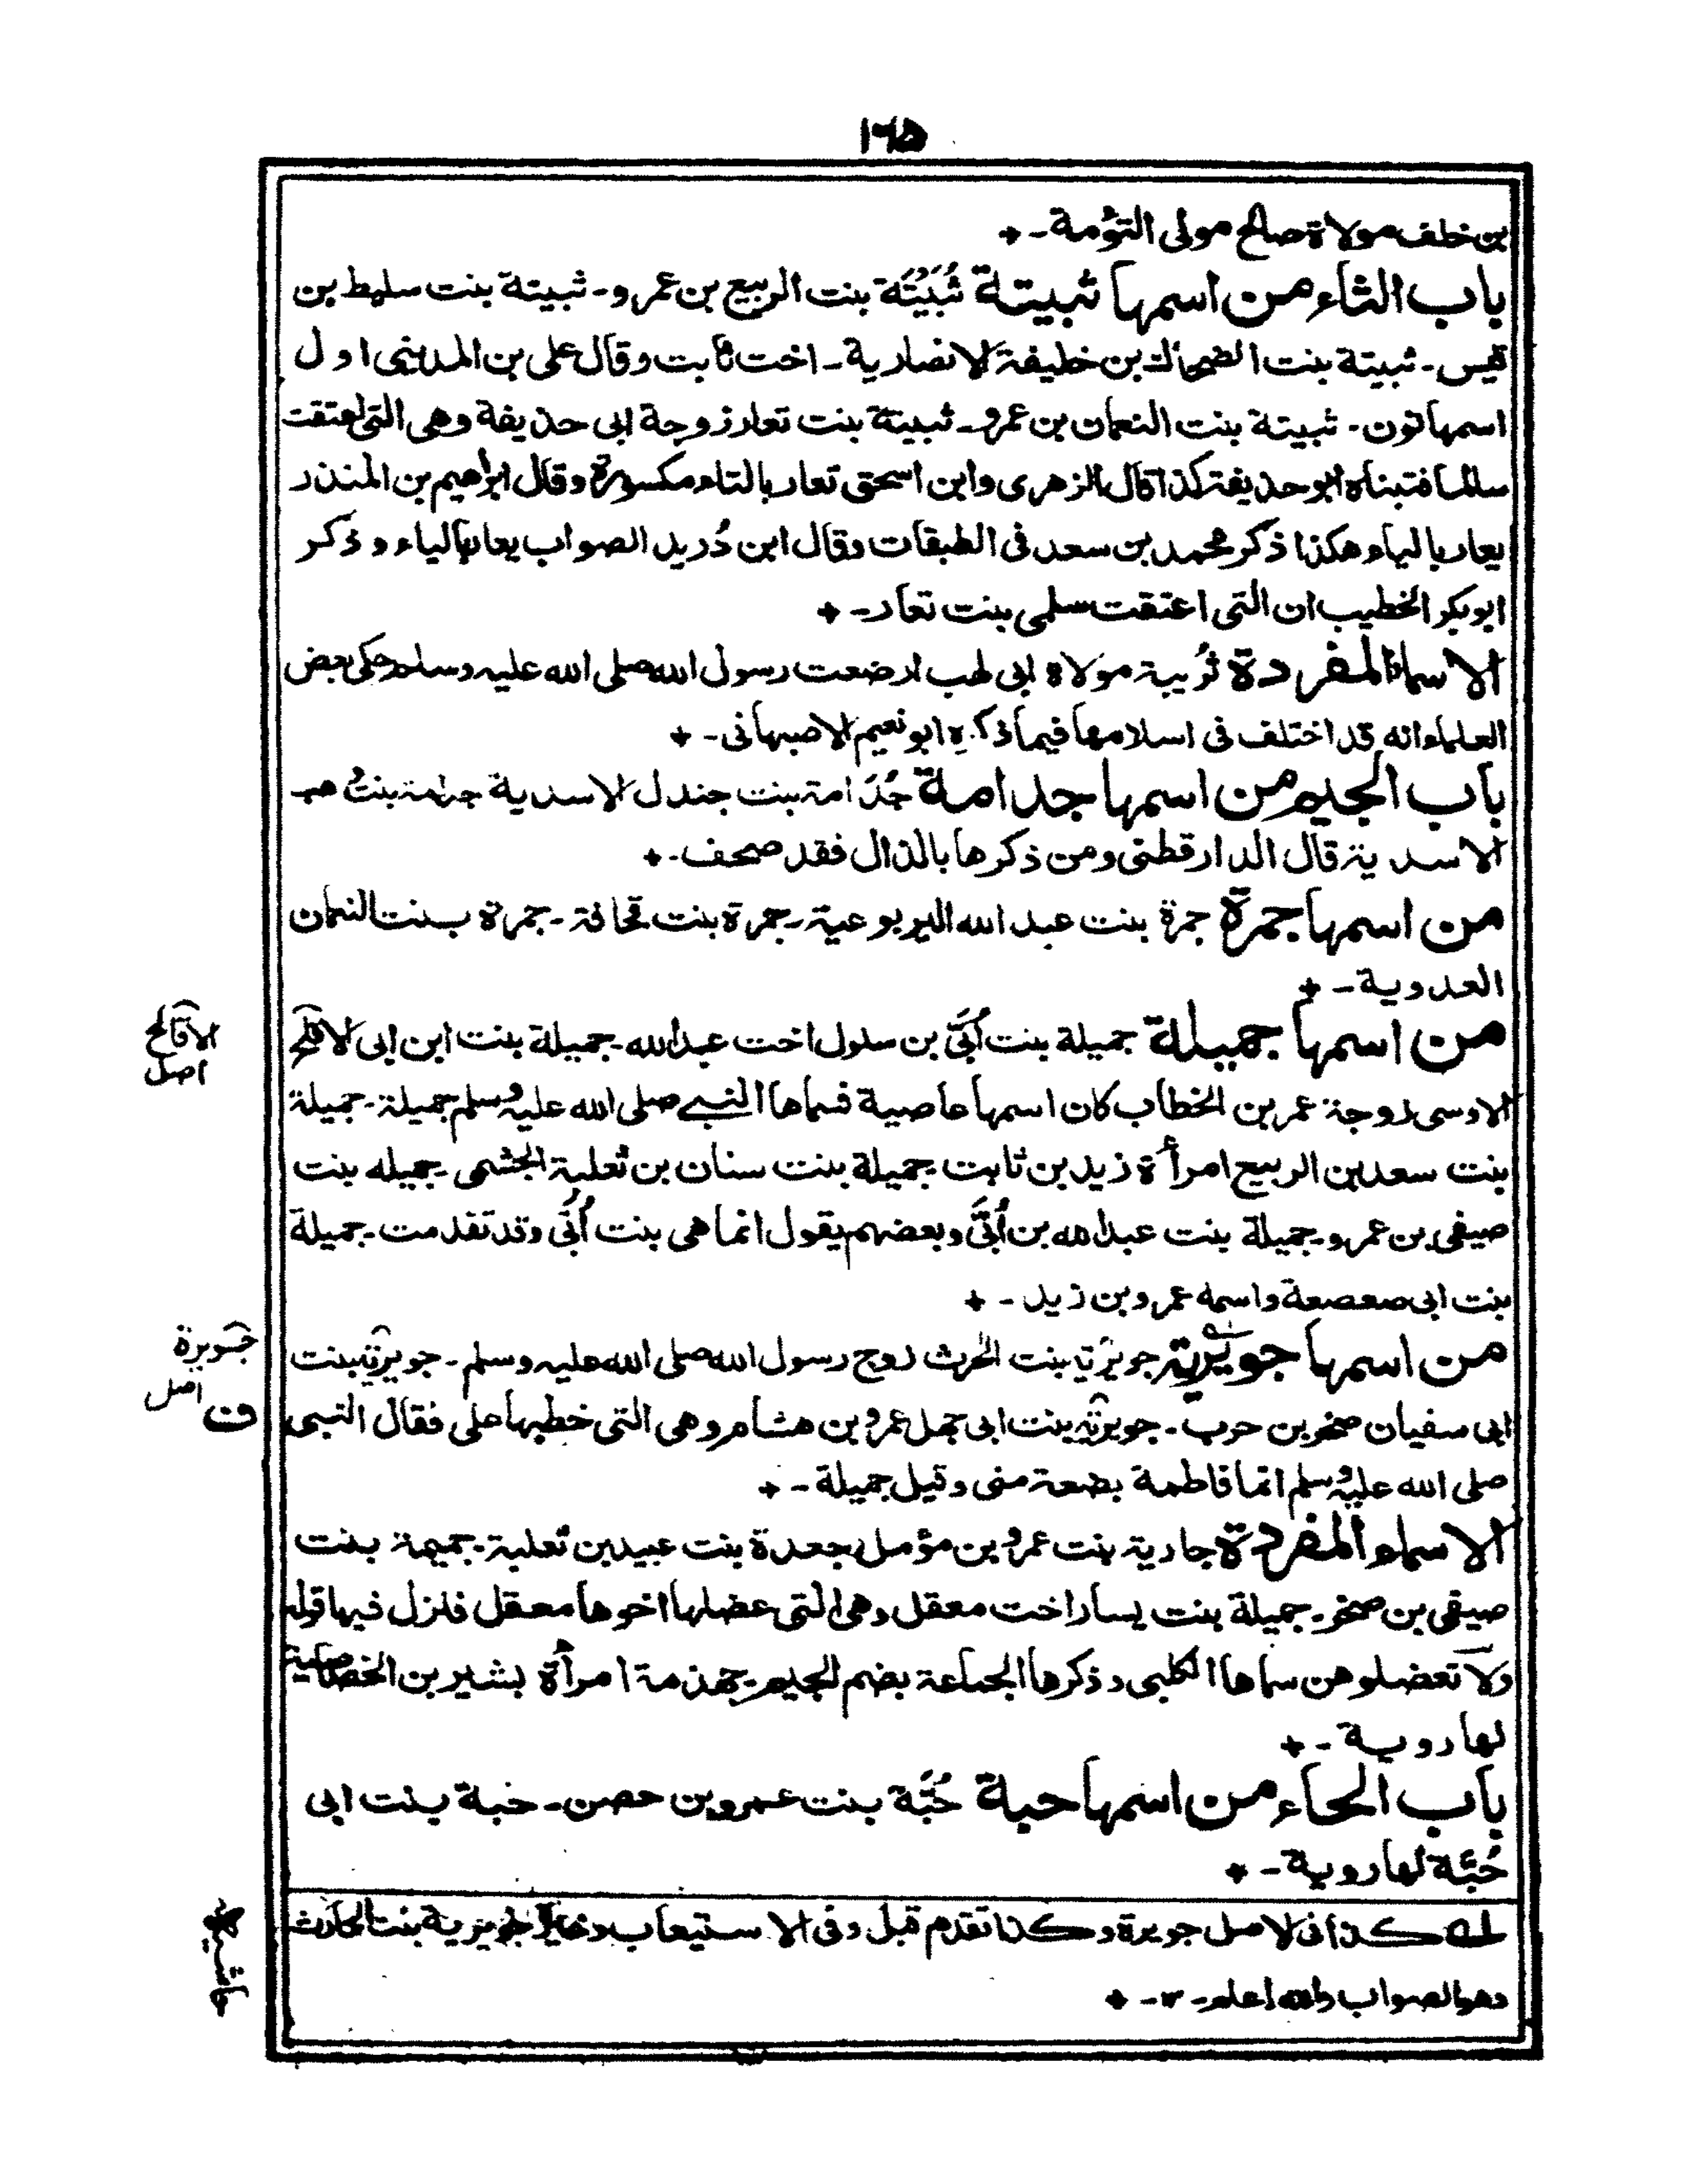 ١٦٥
بن خلف مولاة صالح مولى التؤمة ـ ÷
باب الثاء من اسمها ثبيتة ثُبَيْتَة بنت الربيع بن عمرو ـ ثبيتة بنت سليط بن
قيس ـ ثبيتة بنت الضحاك بن خليفة الانصارية ـ اخت ثابت وقال على بن المدينى اول
اسمها نون ـ ثبيتة بنت النعمان بن عمرو ـ ثبيتة بنت تعار زوجة ابى حذيفة وهى التى اعتقت
سالما فتبناه ابو حذيفة كذا قال الزهرى وابن اسحق تعار بالتاء مكسورة وقال ابراهيم بن المنذر
يعار بالياء هكذا ذكر محمد بن سعد فى الطبقات وقال ابن دُريد الصواب يعار بالياء و ذكر
ابوبكر الخطيب ان التى اعتقت سلمى بنت تعار ـ ÷
الاسماء المفردة ثُريبة مولاة ابى لهب ارضعت رسول الله صلى الله عليه وسلم حكى بعض
العلماء انه قد اختلف فى اسلامها فيما ذكره ابو نعيم الاصبهانى ـ ÷
باب الجيم من اسمها جدامة جُدَامة بنت جندل الاسدية جدامة بنت وهب
الاسدية قال الدارقطنى ومن ذكرها بالذال فقد صحف ـ ÷
من اسمها جمرة جمرة بنت عبد الله اليربوعية ـ جمرة بنت قحافة ـ جمرة بنت النعمان
العدوية ـ ÷
من اسمها جميلة جميلة بنت اُبَىّ بن سلول اخت عبدالله ـ جميلة بنت ابن ابى الاقلح
الاقالح
اصل
الاوسى زوجة عمر بن الخطاب كان اسمها عاصية فسماها النبى صلى الله عليه وسلم جميلة ـ جميلة
بنت سعد بن الربيع امرأة زيد بن ثابت جميلة بنت سنان بن ثعلبة الجشمى ـ جميله بنت
صيفى بن عمرو ـ جميلة بنت عبدالله بن اُبَىّ وبعضهم يقول انما هى بنت اُبَى وقد تقدمت ـ جميلة
بنت ابى صعصعة واسمه عمرو بن زيد ـ ÷
من اسمها جويرية جويرية بنت الحرث زوج رسول الله صلى الله عليه وسلم ـ جويرية بنت
جويرة
اصل
ابى سفيان صخر بن حرب ـ جويرية بنت ابى جهل عمرو بن هشام وهى التى خطبها على فقال النبى
ف
صلى الله عليه وسلم انما فاطمة بضعة منى وقيل جميلة ـ ÷
الاسماء المفردة جارية بنت عمرو بن مؤمل ـ جعدة بنت عبيد بن ثعلبة ـ جميمة بنت
صيفى بن صخر ـ جميلة بنت يسار اخت معقل وهى التى عضلها اخوها معقل فنزل فيها قوله
ولا تعضلوهن سماها الكلبى وذكرها الجماعة بضم الجيم ـ جهذمة امرأة بشير بن الخصاصية
لها روية ـ ÷
باب الحاء من اسمها حبة حُبَّة بنت عمرو بن حصن ـ حبة بنت ابى
حُبَّة لها روية ـ ÷
له كذا فى الاصل جويرة وكذا تقدم قبل وفى الاستيعاب وغيره جويرية بنت الحارث
وهو الصواب والله اعلم ـ ١٢ ـ ÷
حاشية